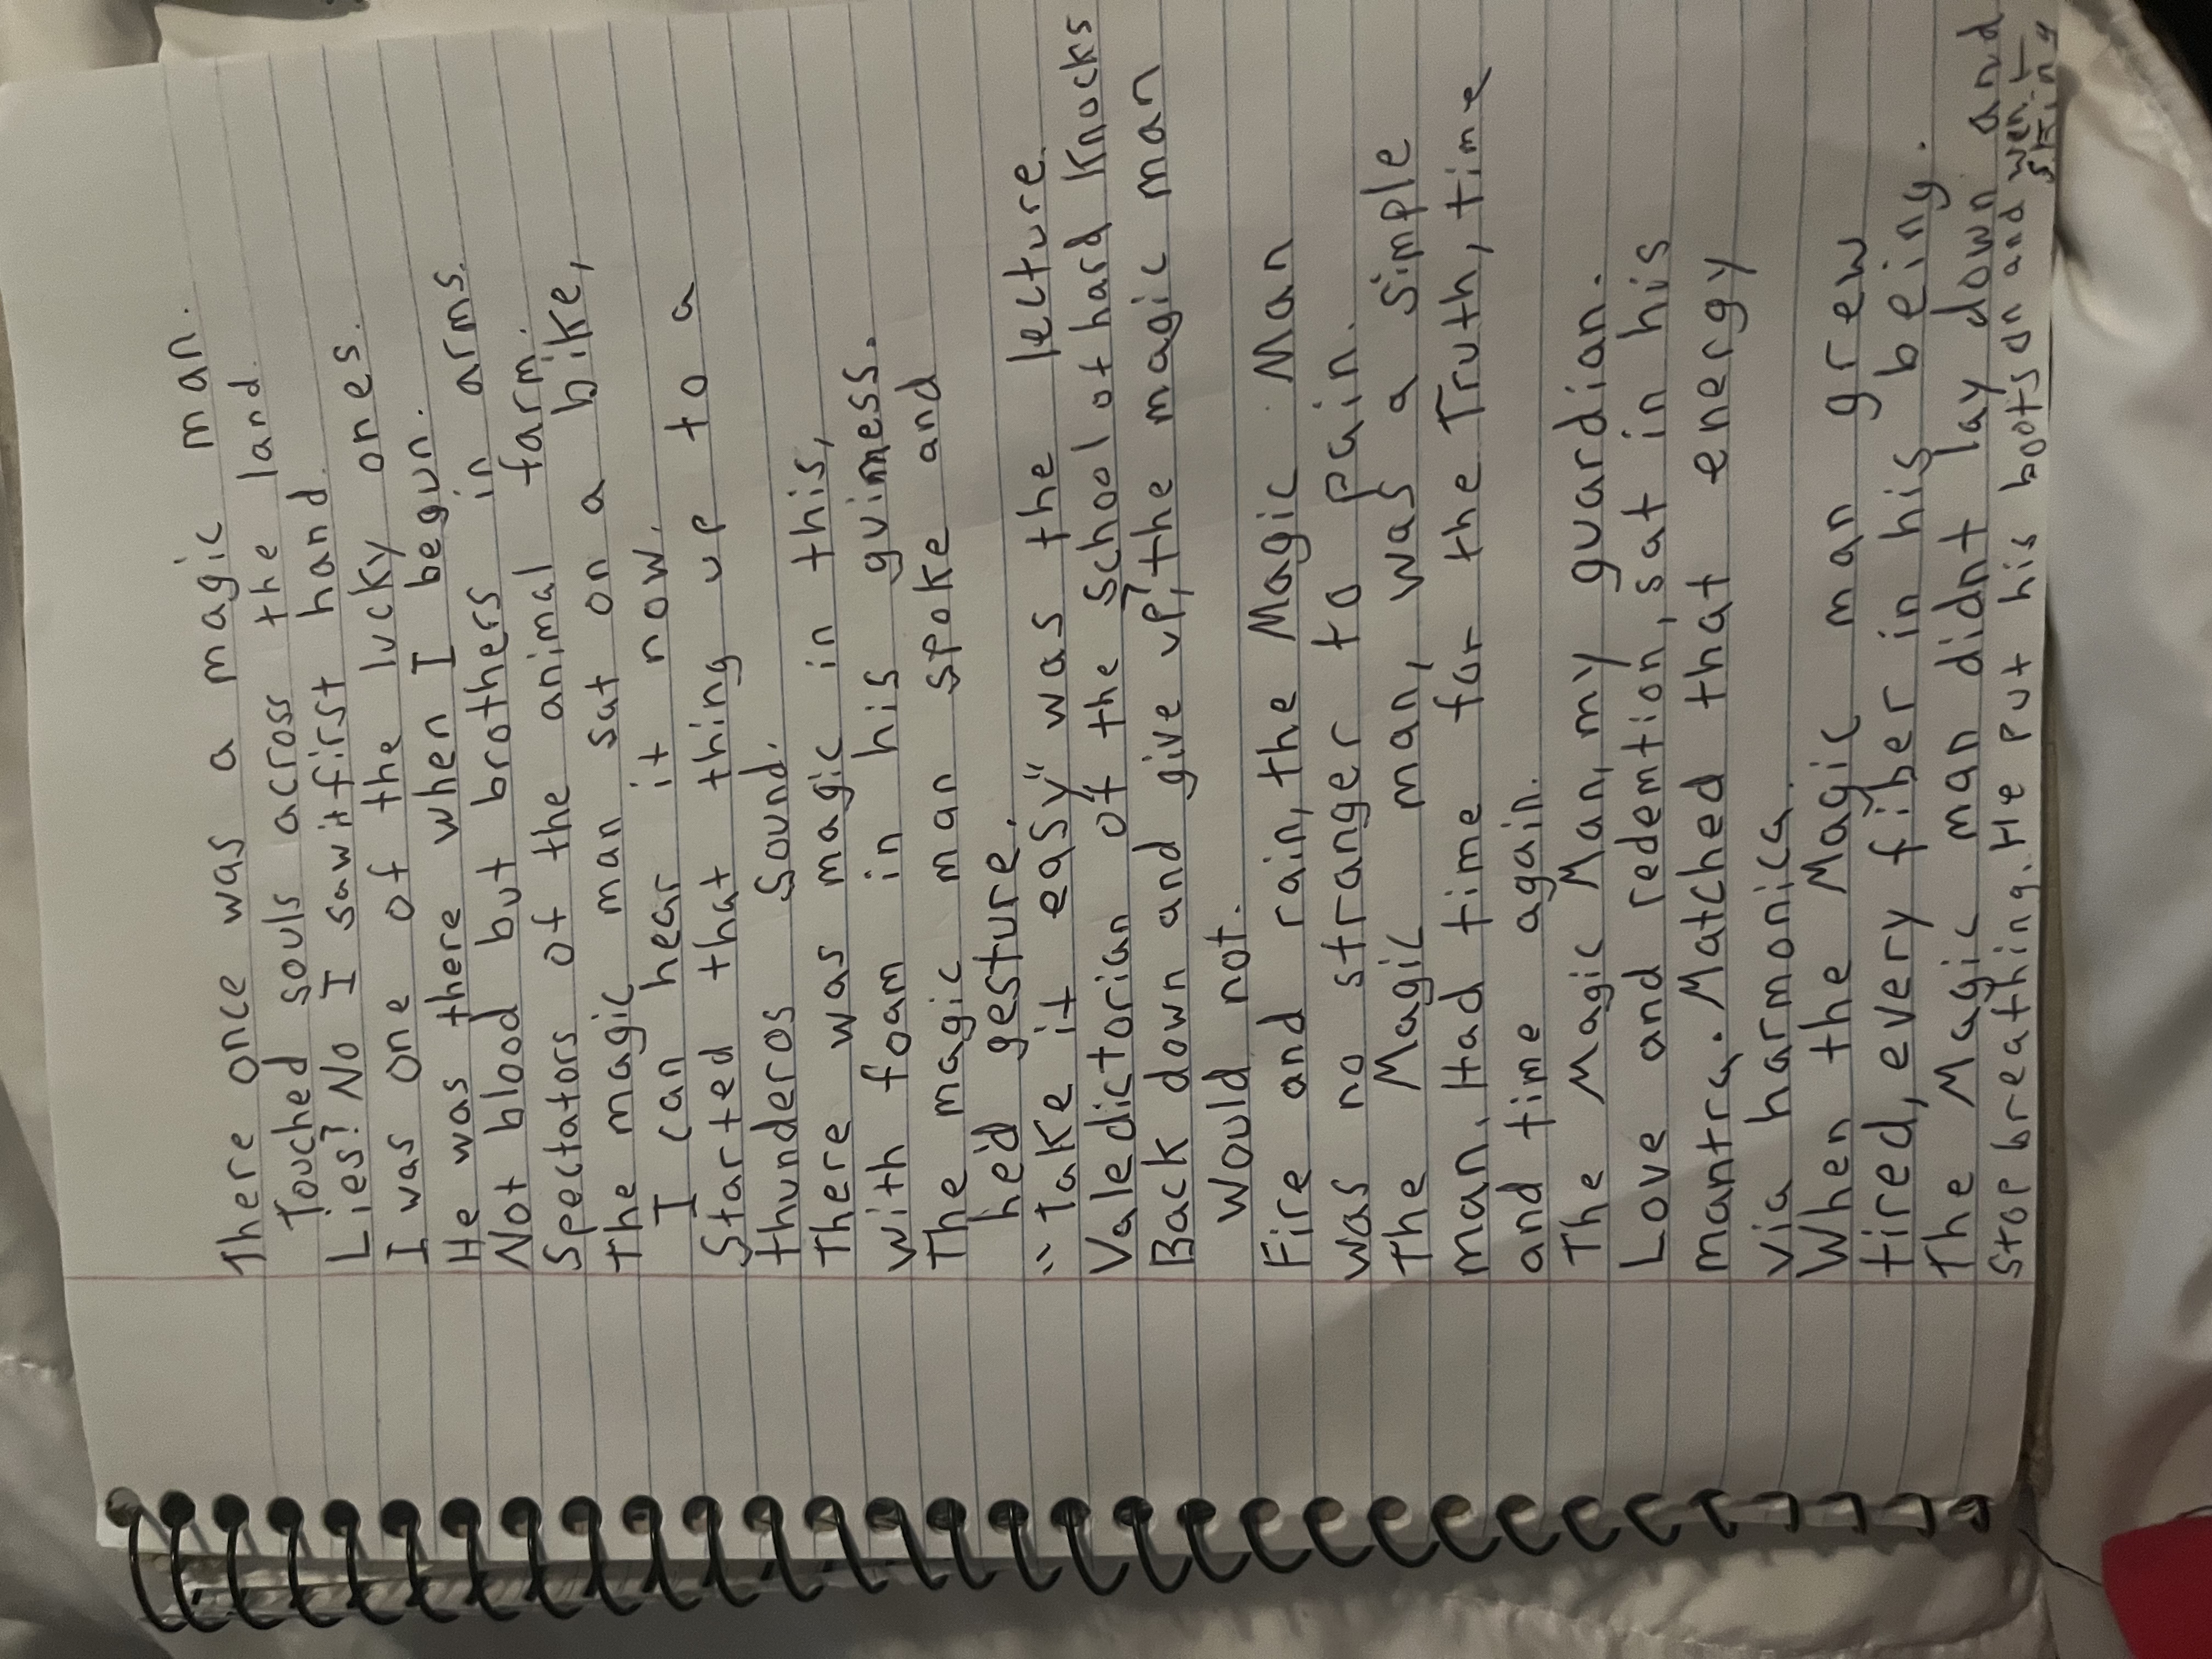 There once was a magic man.
Touched souls across the land.
Lies? No I saw it first hand.
I was one of the lucky ones.
He was there when I begun.
Not blood but brothers in arms.
Spectators of the animal farm.
The magic man sat on a bike,
I can hear it now.
Started that thing up to a
thunderos sound.
There was magic in this,
with foam in his guinness.
The magic man spoke and
he'd gesture.
"Take it easy" was the lecture.
Valedictorian of the school of hard knocks
Back down and give up?, the magic man
would not.
Fire and rain, the Magic Man
was no stranger to pain.
The Magic man, was a simple
man. Had time for the Truth, time
and time again.
The Magic Man, my guardian.
Love and redemtion, sat in his
mantra. Matched that energy
via harmonica.
When the Magic man grew
tired, every fiber in his being.
The Magic man didnt lay down and
stop breathing. He put his boots on and went
skiing